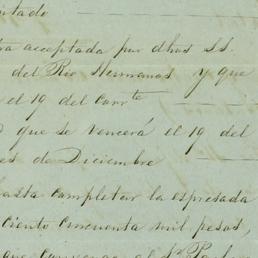 ntado
ra acceptada por dhos SS.
del Rio Hermanos y que
el 19 del Corrte
que se vencerá el 19 del
es de Diciembre
hasta completar la espresada
ciento cincuenta mil pesos,
que al Sr